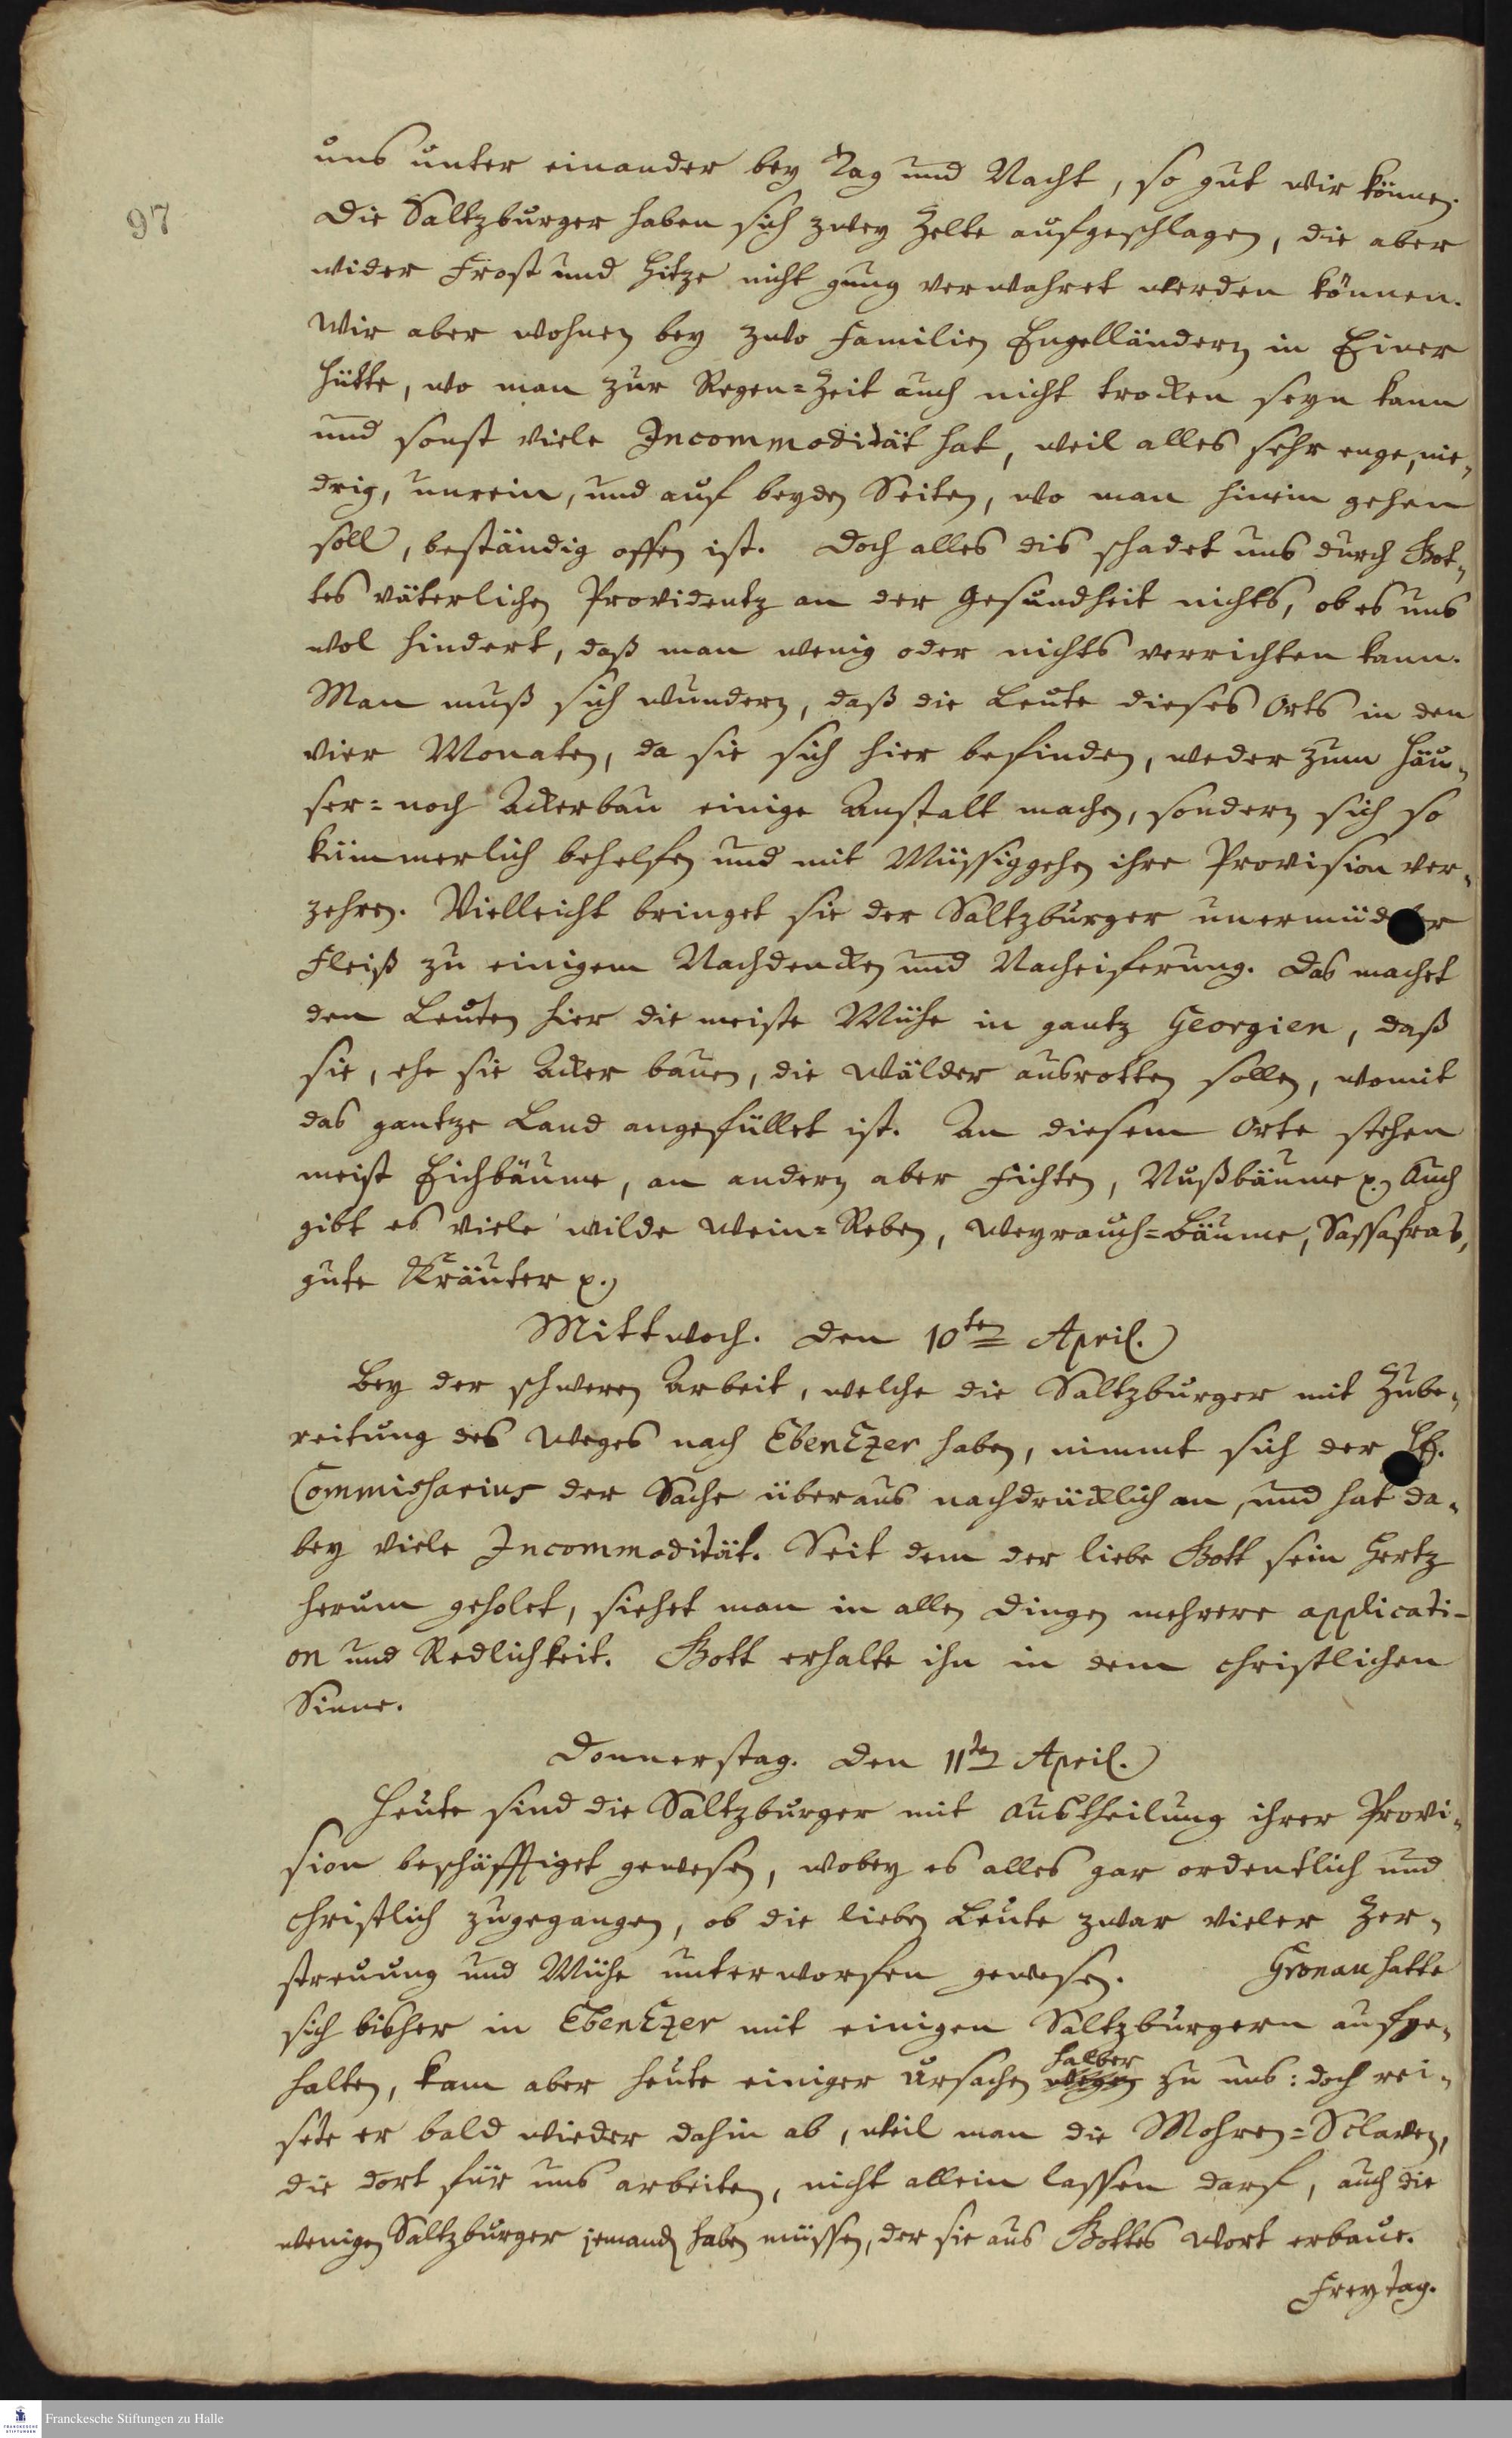 97
uns unter einander bey Tag und Nacht, so gut wir können.
Die Saltzburger haben sich zwey Zelte aufgeschlagen, die aber
wider Frost und Hitze nicht gnug verwahret werden können.
Wir aber wohnen bey zwo Familien Engelländern in Einer
Hütte, wo man zur Regen=Zeit auch nicht trocken seyn kann
und sonst viele Incommodität hat, weil alles sehr enge, nie„
drig, unrein, und auf beyden Seiten, wo man hinein gehen
soll, beständig offen ist. Doch alles dis schadet uns durch Got„
tes väterlichen Providentz an der Gesundheit nichts, ob es uns
wol hindert, daß man wenig oder nichts verrichten kann.
Man muß sich wundern, daß die Leute dieses Orts in den
vier Monaten, da sie sich hier befinden, weder zum Häu„
ser= noch Ackerbau einige Anstalt machen, sondern sich so
kümmerlich behelfen und mit Müssiggehen ihre Provision ver„
zehren. Vielleicht bringet sie der Saltzburger unermüdeter
Fleiß zu einigem Nachdencken und Nacheiferung. Das machet
den Leuten hier die meiste Mühe in gantz Georgien, daß
sie, ehe sie Acker bauen, die Wälder ausrotten sollen, womit
das gantze Land angefüllet ist. An diesem Orte stehen
meist Eichbäume, an andern aber Fichten, Nußbäume p. Auch
gibt es viele wilde Wein=Reben, Weyrauch=Bäume, Sassafras,
gute Kräuter p.
Mittwoch. den 10ten April.
Bey der schweren Arbeit, welche die Saltzburger mit Zube„
reitung des Weges nach EbenEzer haben, nimmt sich der H.
Commissarius der Sache überaus nachdrücklich an, und hat da„
bey viele Incommodität. Seit dem der liebe Gott sein Hertz
herum geholet, siehet man in allen Dingen mehrere applicati-
on und Redlichkeit. Gott erhalte ihn in dem christlichen
Sinne.
Donnerstag. den 11ten April.
Heute sind die Saltzburger mit Austheilung ihrer Provi„
sion beschäfftiget gewesen, wobey es alles gar ordentlich und
christlich zugegangen, ob die lieben Leute zwar vieler Zer„
streuung und Mühe unterworfen gewesen. Gronau hatte
sich bisher in EbenEzer mit einigen Saltzburgern aufge„
halten, kam aber heute einiger Ursachen wegen halber zu uns: doch rei„
sete er bald wieder dahin ab, weil man die Mohren=Sclaven,
die dort für uns arbeiten, nicht allein lassen darf, auch die
wenigen Saltzburger jemand haben müssen, der sie aus Gottes Wort erbaue.
Freytag.
Franckesche Stiftungen zu Halle